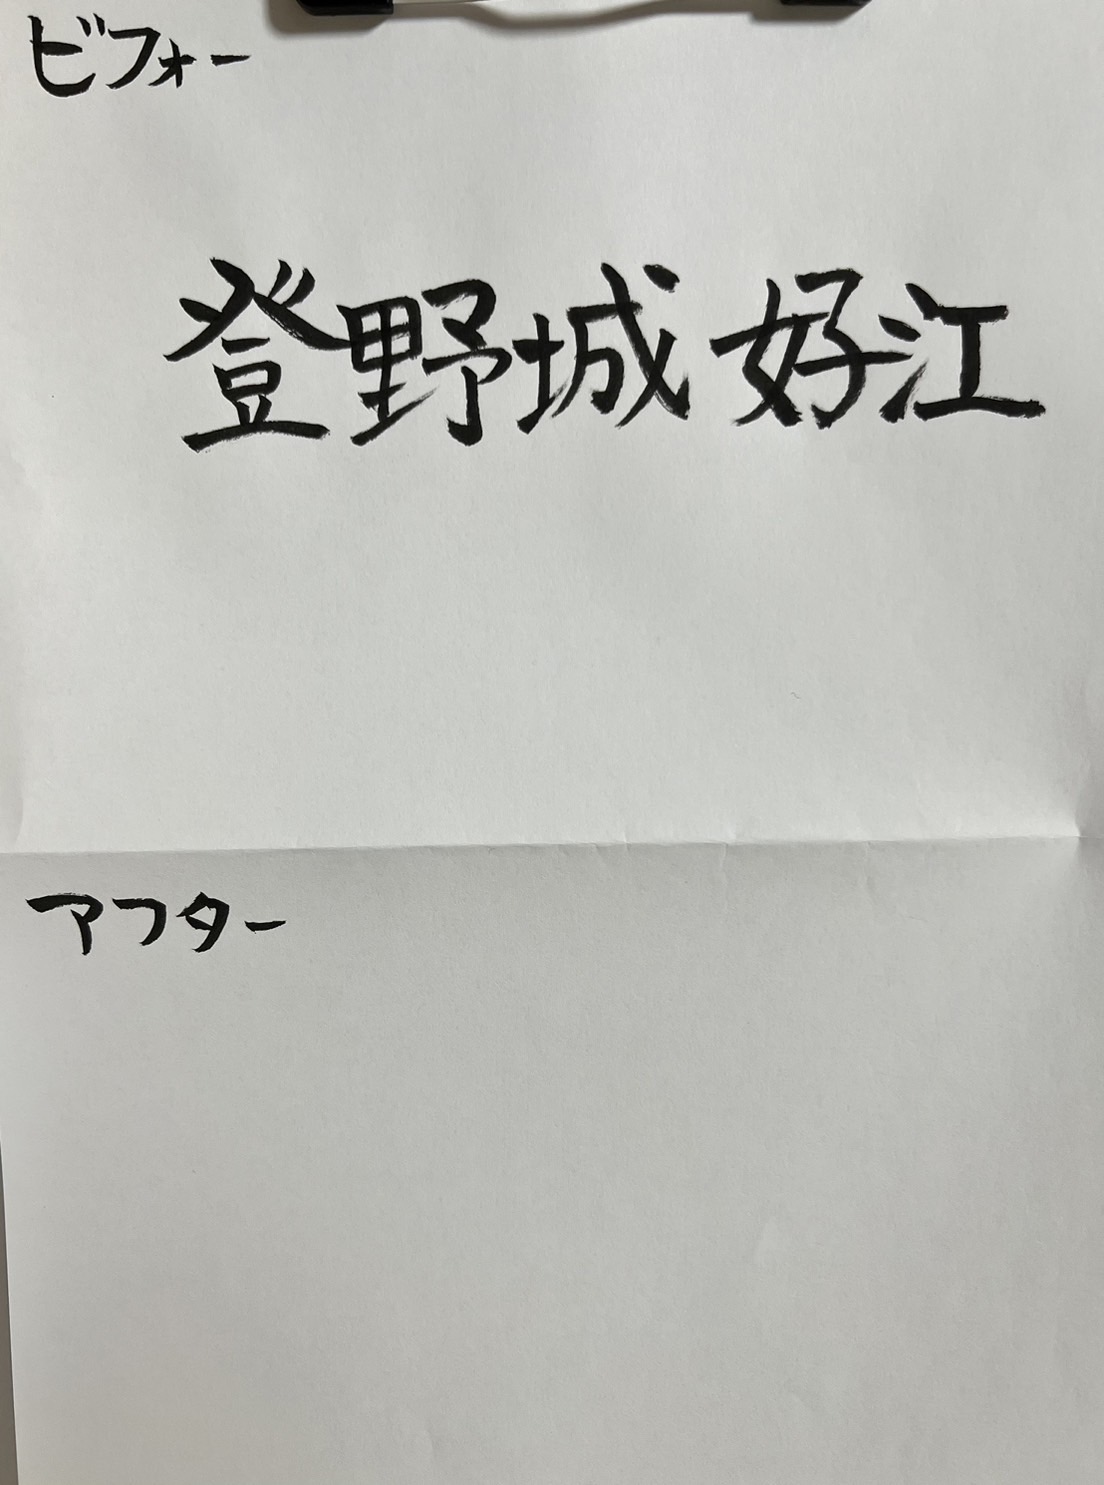 ビフォー
登野城 好江
アフター